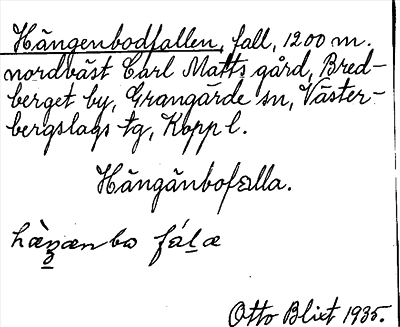 Hängenbodfallen, fall, 1200 m.
nordväst Carl Matts gård, Bred-
berget by, Grangärde sn, Väster-
bergslags tg, Kopp l.
Hängänbofalla.
hæ̀ŋæn bo fál̲æ
Otto Blixt 1935.